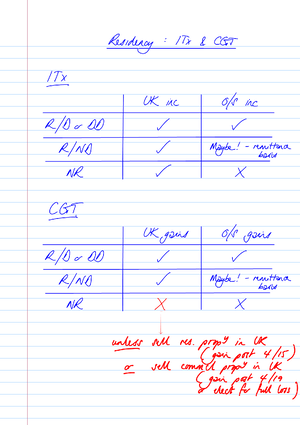 Residency : ITx & CGT
ITx
UK inc O/S inc
R/D or DD ✓ ✓
R/ND ✓ Maybe! - remittance basis
NR ✓ X
CGT
UK gains O/S gains
R/D or DD ✓ ✓
R/ND ✓ Maybe! - remittance basis
NR X X
unless sell res. propy in UK
(gain post 4/15)
or sell comm propy in UK
(gain post 4/19
or elect for full loss)